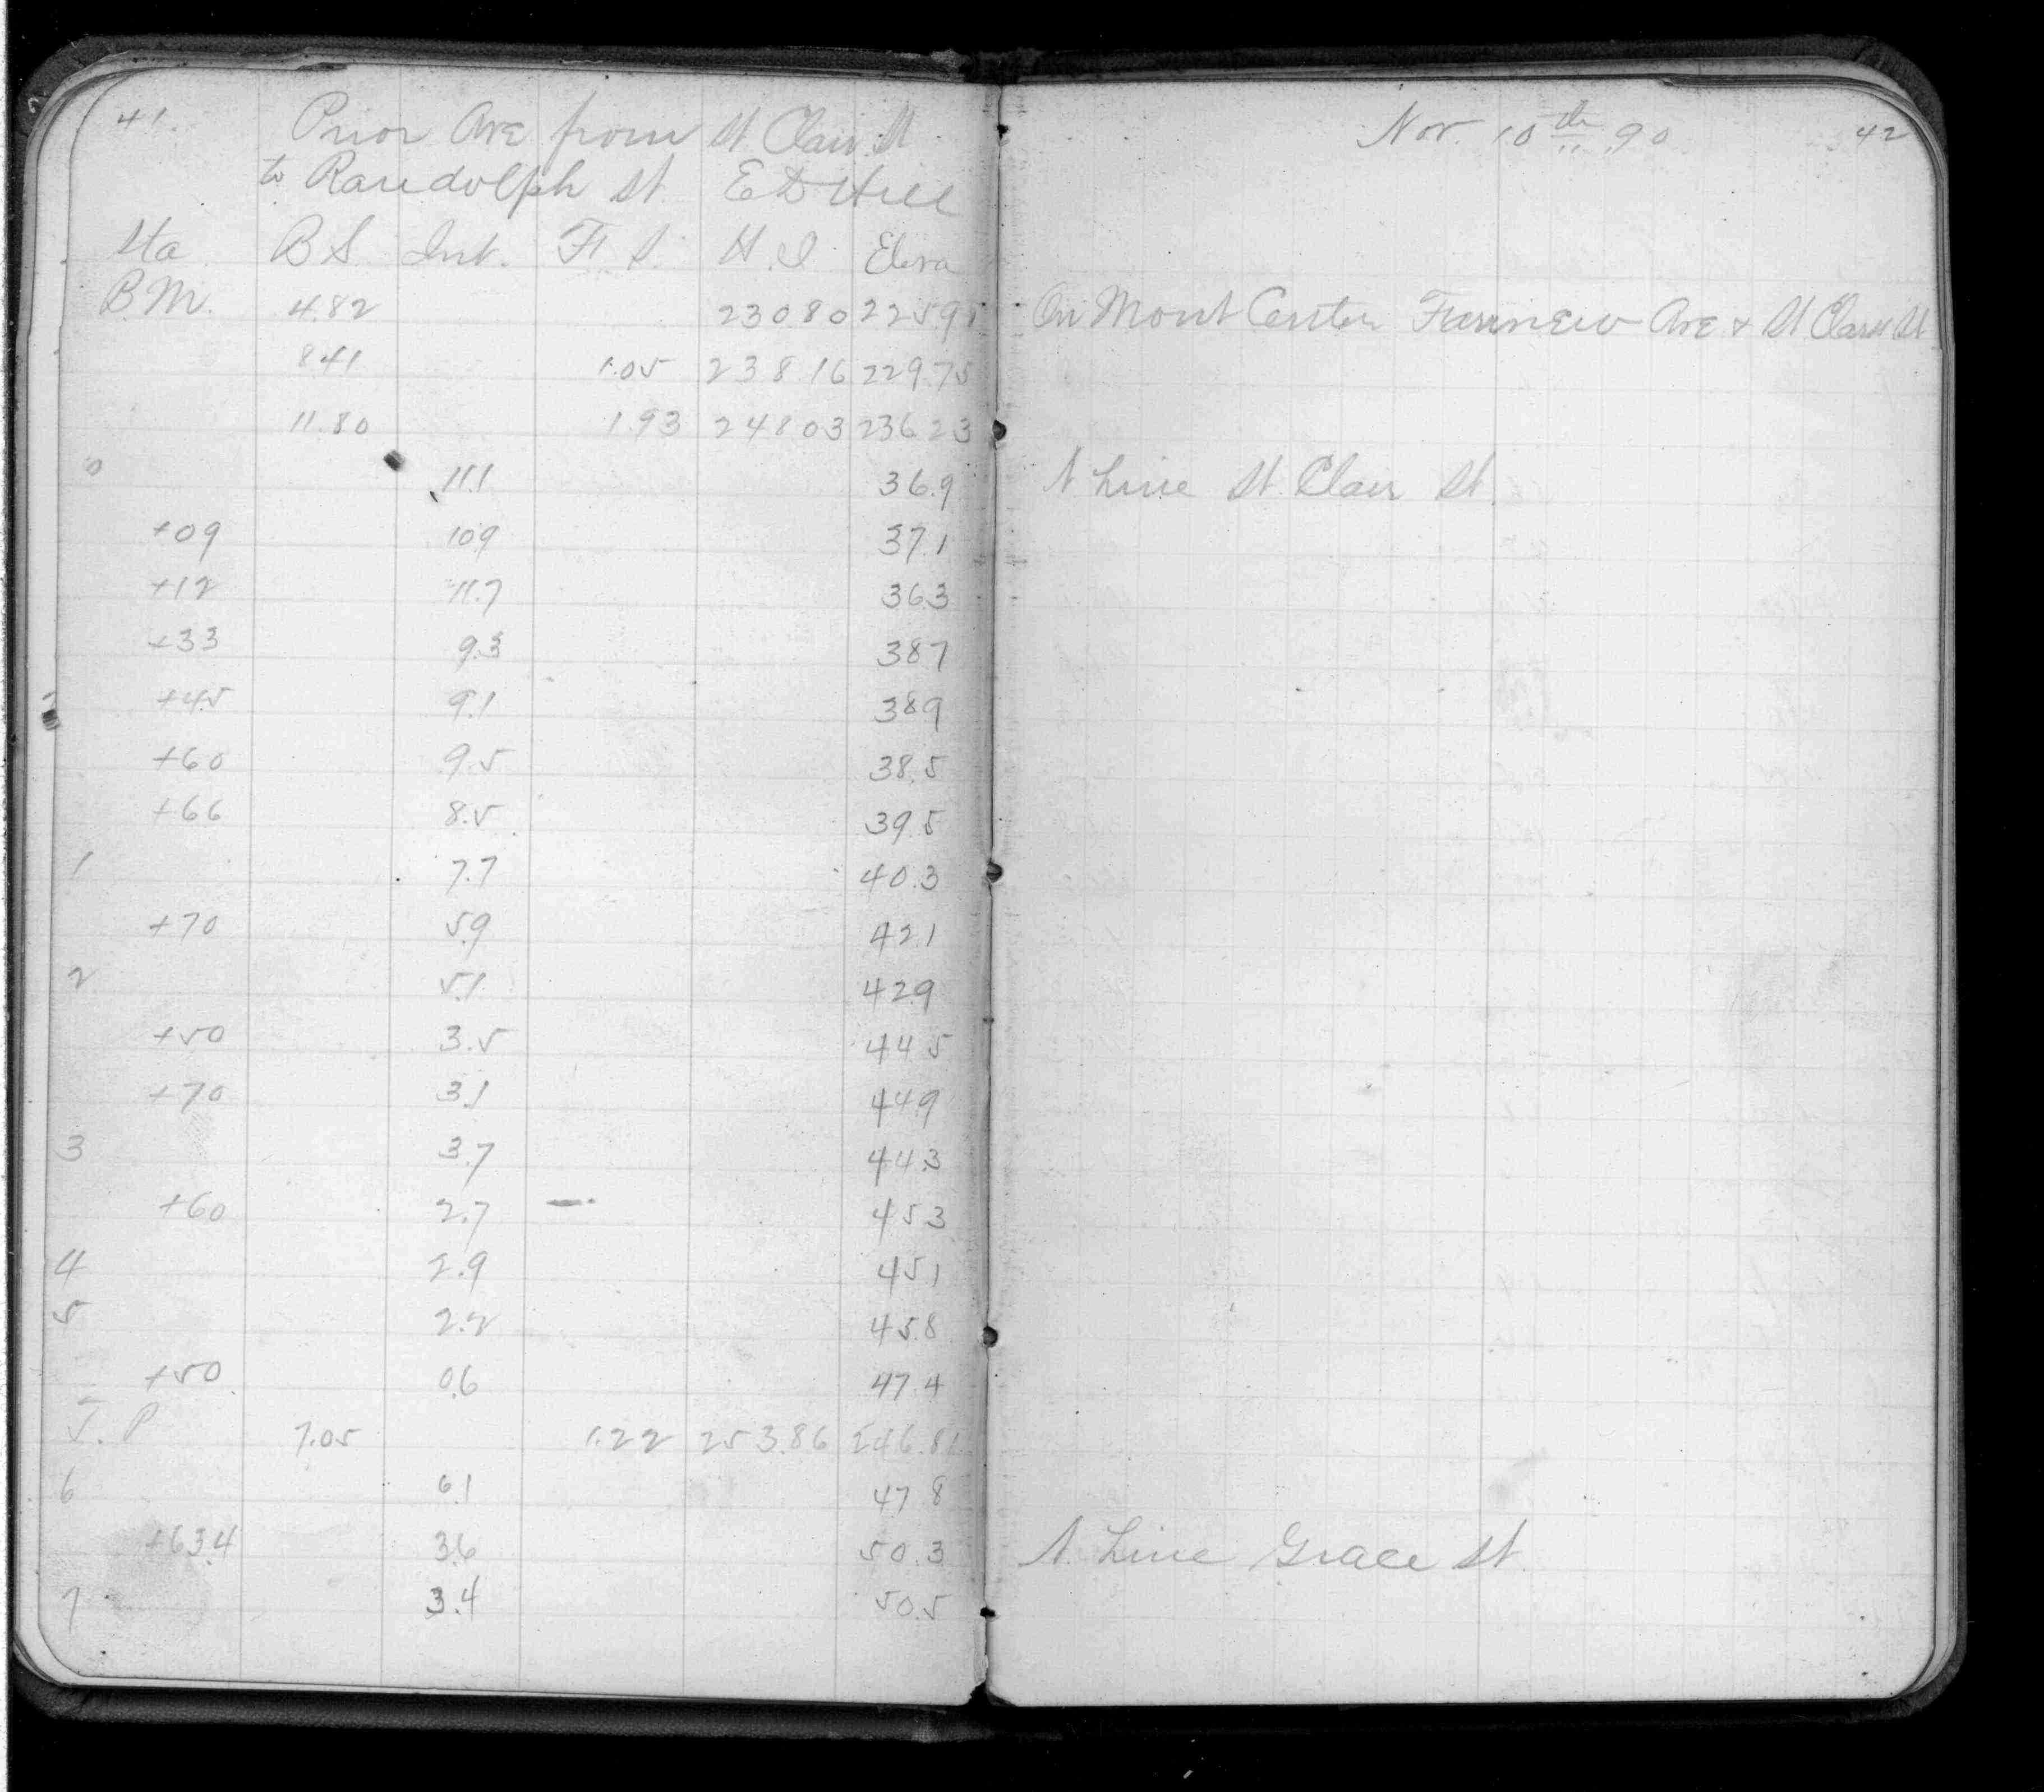 41.
Prior Ave from St Clair St
to Randolph St. E D Hill
Sta B S. Int. F S. H. I Eleva
B M. 4.82 230.80 225.98
8.41 1.05 238.16 229.75
11.80 1.93 248.03 236.23
0 11.1 36.9
+09 10.9 37.1
+12 11.7 36.3
+33 9.3 38.7
+45 9.1 38.9
+60 9.5 38.5
+66 8.5 39.5
1 7.7 40.3
+70 5.9 42.1
2 5.1 42.9
+50 3.5 44.5
+70 3.1 44.9
3 3.7 44.3
+60 2.7 45.3
4 2.9 45.1
5 2.2 45.8
+50 0.6 47.4
T. P 7.05 1.22 253.86 246.81
6 6.1 47.8
+63.4 3.6 50.3
7 3.4 50.5
Nov. 10th 90 42
On Mont Center Fairview Ave + St Clair St
N Line St. Clair St.
N. Line Grace St.